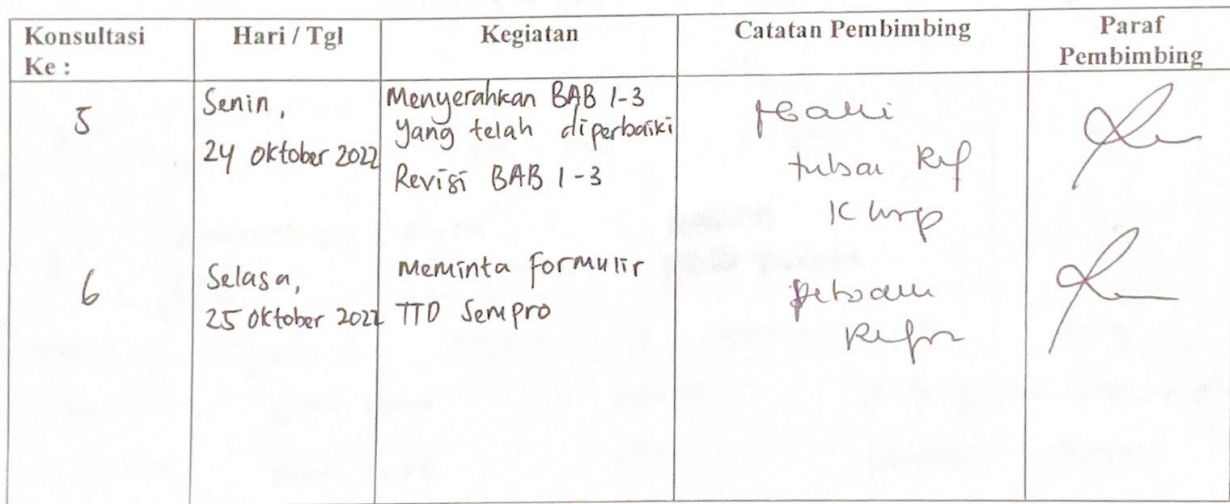 Konsultasi Ke :
Hari / Tgl
Kegiatan
Catatan Pembimbing
Paraf Pembimbing
5
Senin,
24 Oktober 2022
Menyerahkan BAB 1-3
yang telah diperbaiki
Revisi BAB 1-3
6
Selasa,
25 Oktober 2022
Meminta formulir
TTD Sempro